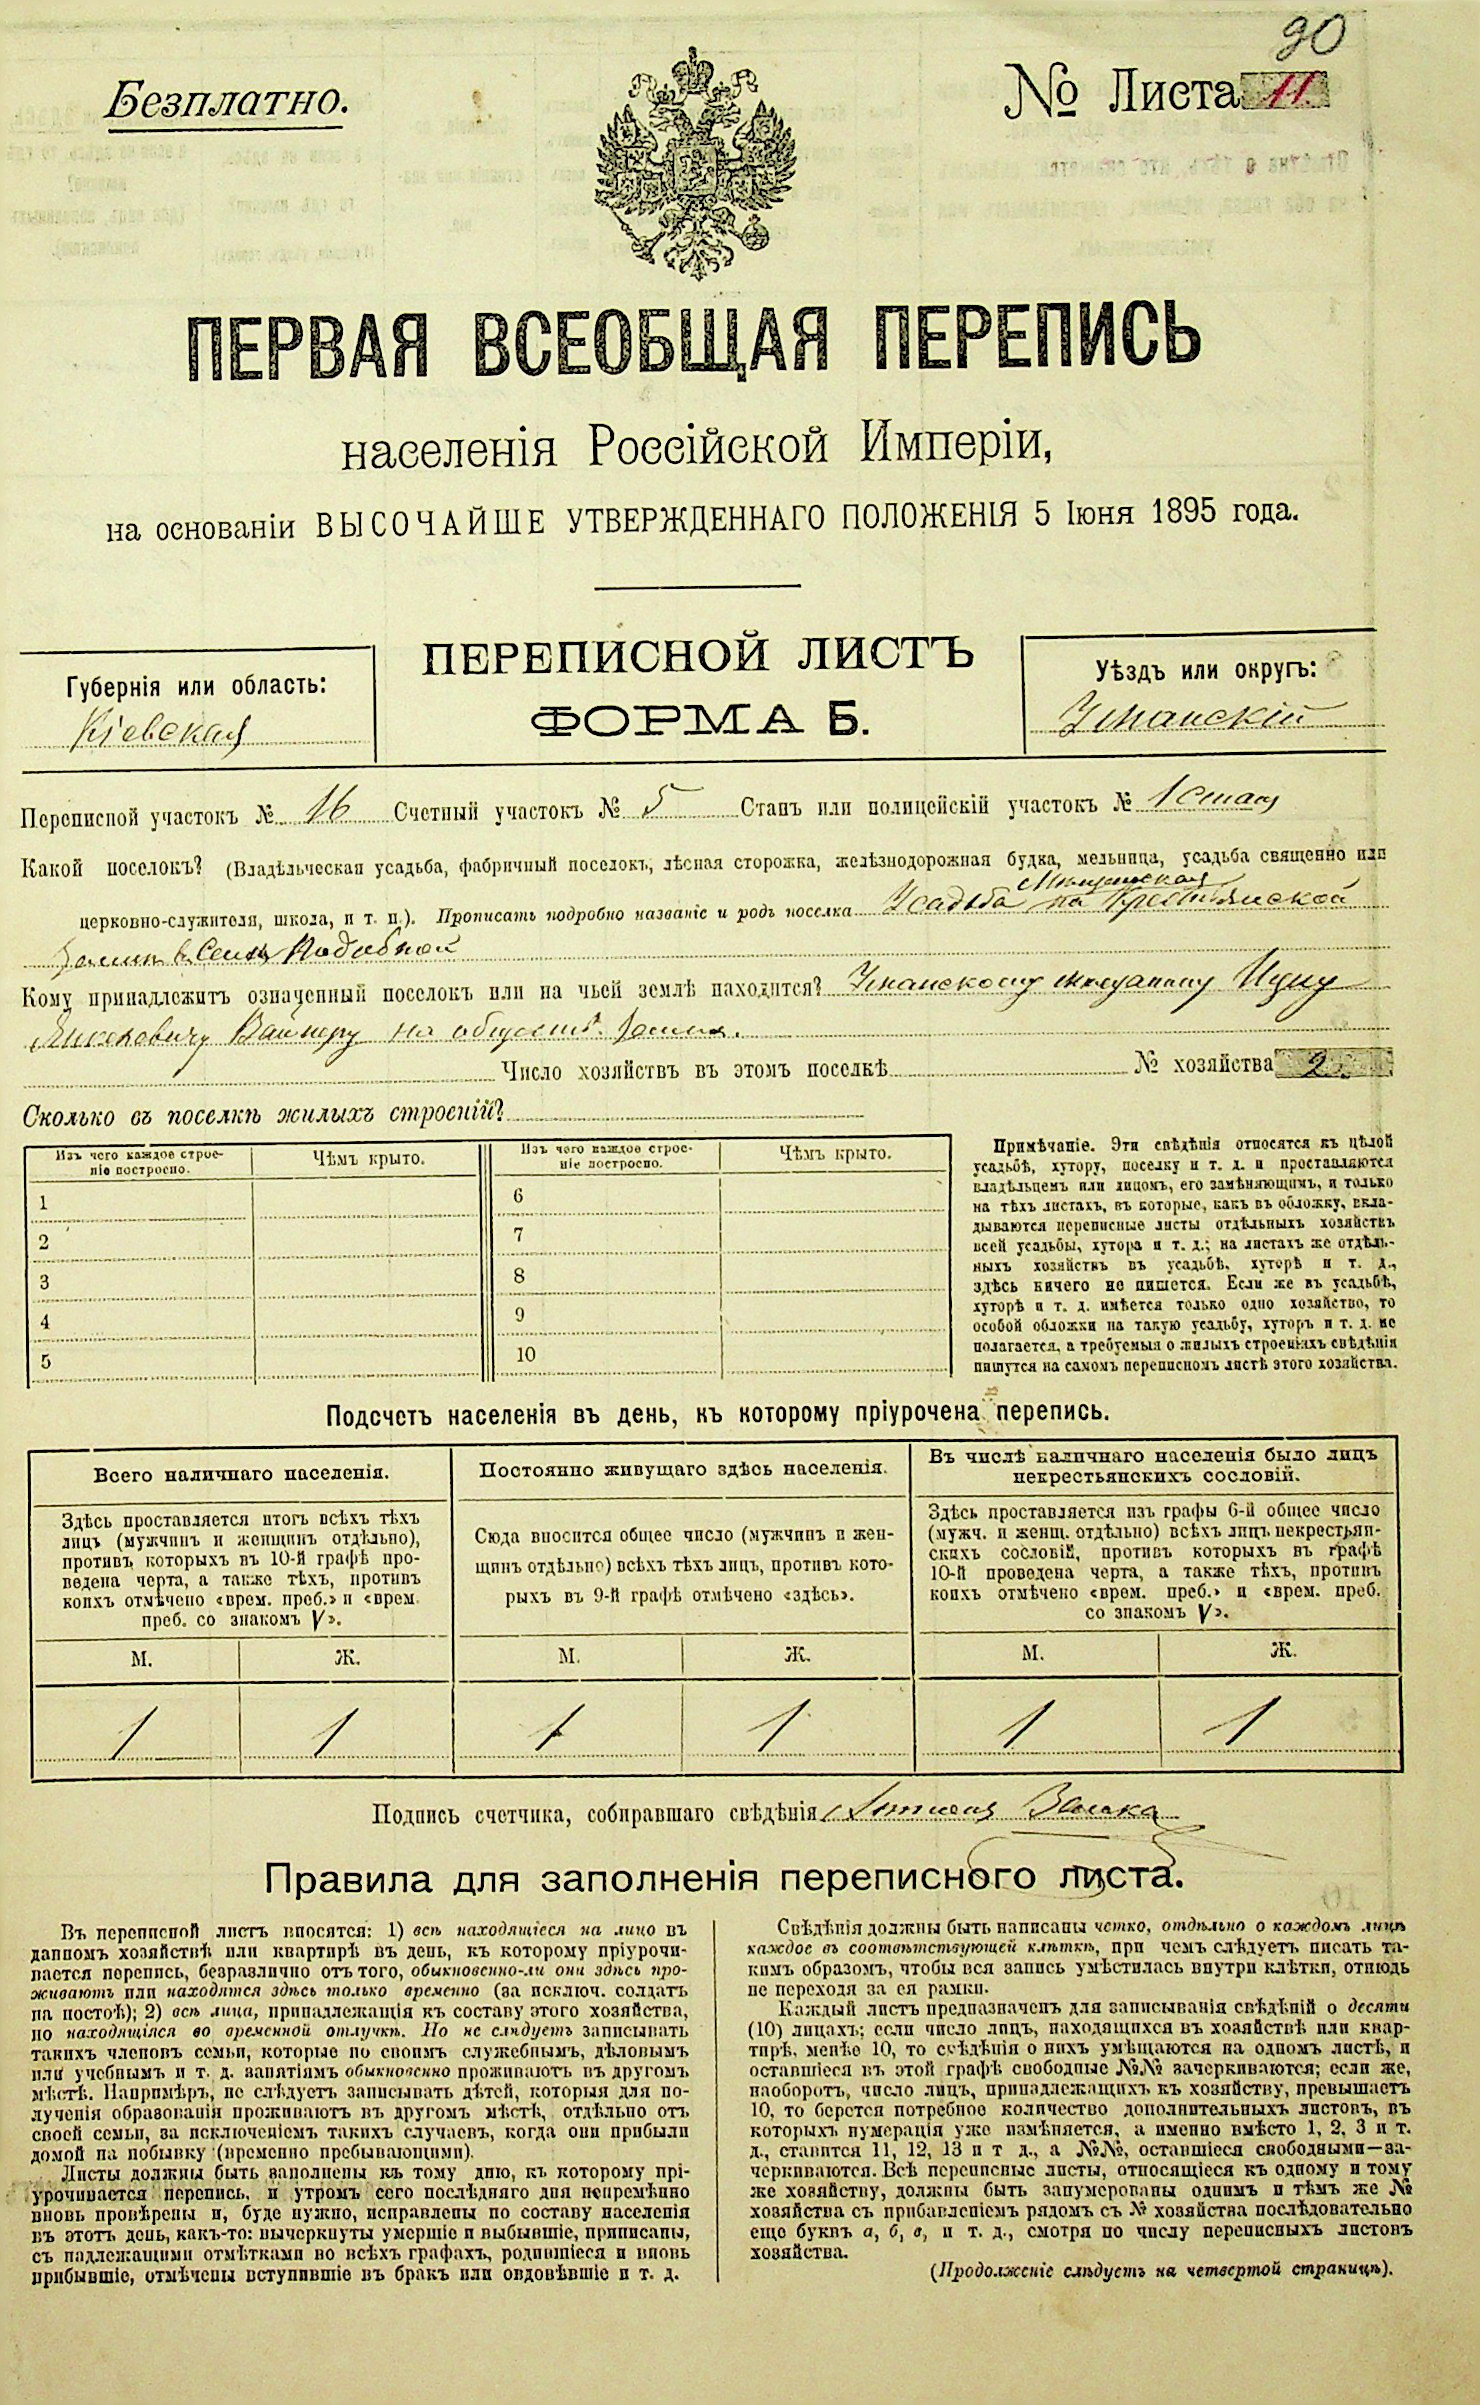 90
Безплатно.
№ Листа 11
ПЕРВАЯ ВСЕОБЩАЯ ПЕРЕПИСЬ
населенія Россійской Имперіи,
на основаніи ВЫСОЧАЙШЕ УТВЕРЖДЕННАГО ПОЛОЖЕНІЯ 5 Іюня 1895 года.
Губернія или область:
Кіевская
ПЕРЕПИСНОЙ ЛИСТЪ
ФОРМА Б.
Уѣздъ или округъ:
Уманскій
Переписной участокъ № 16 Счетный участокъ № 5 Станъ или полицейскій участокъ № 1 стан
Какой поселокъ? (Владѣльческая усадьба, фабричный поселокъ, лѣсная сторожка, желѣзнодорожная будка, мельница, усадьба священно или
церковно-служителя, школа, и т. п.). Прописать подробно названіе и родъ поселка Усадьба на Крестьянской
земли в Селѣ
Кому принадлежитъ означенный поселокъ или на чьей землѣ находится? Уманскому мещанину Ицку
Вайнеру на обществ. земли.
Число хозяйствъ въ этомъ поселкѣ № хозяйства 2.
Сколько въ поселкѣ жилыхъ строеній?
Изъ чего каждое строе-
ніе построено.
Чѣмъ крыто.
Изъ чего каждое строе-
ніе построено.
Чѣмъ крыто.
1
2
3
4
5
6
7
8
9
10
Примѣчаніе. Эти свѣдѣнія относятся къ цѣлой
усадьбѣ, хутору, поселку и т. д. и проставляются
владѣльцемъ или лицомъ, его замѣняющимъ, и только
на тѣхъ листахъ, въ которые, какъ въ обложку, вкла-
дываются переписные листы отдѣльныхъ хозяйствъ
всей усадьбы, хутора и т. д.; на листахъ же отдѣль-
ныхъ хозяйствъ въ усадьбѣ, хуторѣ и т. д.,
здѣсь ничего не пишется. Если же въ усадьбѣ,
хуторѣ и т. д. имѣется только одно хозяйство, то
особой обложки на такую усадьбу, хуторъ и т. д. не
полагается, а требуемыя о жилыхъ строеніяхъ свѣдѣнія
пишутся на самомъ переписномъ листѣ этого хозяйства.
Подсчетъ населенія въ день, къ которому пріурочена перепись.
Всего наличнаго населенія.
Постоянно живущаго здѣсь населенія.
Въ числѣ наличнаго населенія было лицъ
некрестьянскихъ сословій.
Здѣсь проставляется итогъ всѣхъ тѣхъ
лицъ (мужчинъ и женщинъ отдѣльно),
противъ которыхъ въ 10-й графѣ про-
ведена черта, а также тѣхъ, противъ
коихъ отмѣчено «врем. преб.» и «врем.
преб. со знакомъ V».
Сюда вносится общее число (мужчинъ и жен-
щинъ отдѣльно) всѣхъ тѣхъ лицъ, противъ кото-
рыхъ въ 9-й графѣ отмѣчено «здѣсь».
Здѣсь проставляется изъ графы 6-й общее число
(мужч. и женщ. отдѣльно) всѣхъ лицъ некрестьян-
скихъ сословій, противъ которыхъ въ графѣ
10-й проведена черта, а также тѣхъ, противъ
коихъ отмѣчено «врем. преб.» и «врем. преб.
со знакомъ V».
М. Ж. М. Ж. М. Ж.
1 1 1 1 1 1
Подпись счетчика, собиравшаго свѣдѣнія
Правила для заполненія переписного листа.
Въ переписной листъ вносятся: 1) всѣ находящіеся на лицо въ
данномъ хозяйствѣ или квартирѣ въ день, къ которому пріурочи-
вается перепись, безразлично отъ того, обыкновенно-ли они здѣсь про-
живаютъ или находятся здѣсь только временно (за исключ. солдатъ
на постоѣ); 2) всѣ лица, принадлежащія къ составу этого хозяйства,
но находящіяся во временной отлучкѣ. Но не слѣдуетъ записывать
такихъ членовъ семьи, которые по своимъ служебнымъ, дѣловымъ
или учебнымъ и т. д. занятіямъ обыкновенно проживаютъ въ другомъ
мѣстѣ. Напримѣръ, не слѣдуетъ записывать дѣтей, которыя для по-
лученія образованія проживаютъ въ другомъ мѣстѣ, отдѣльно отъ
своей семьи, за исключеніемъ такихъ случаевъ, когда они прибыли
домой на побывку (временно пребывающими).
Листы должны быть заполнены къ тому дню, къ которому прі-
урочивается перепись, и утромъ сего послѣдняго дня непремѣнно
вновь провѣрены и, буде нужно, исправлены по составу населенія
въ этотъ день, какъ-то: вычеркнуты умершіе и выбывшіе, приписаны,
съ надлежащими отмѣтками во всѣхъ графахъ, родившіеся и вновь
прибывшіе, отмѣчены вступившіе въ бракъ или овдовѣвшіе и т. д.
Свѣдѣнія должны быть написаны четко, отдѣльно о каждомъ лицѣ
каждое въ соотвѣтствующей клѣткѣ, при чемъ слѣдуетъ писать та-
кимъ образомъ, чтобы вся запись умѣстилась внутри клѣтки, отнюдь
не переходя за ея рамки.
Каждый листъ предназначенъ для записыванія свѣдѣній о десяти
(10) лицахъ; если число лицъ, находящихся въ хозяйствѣ или квар-
тирѣ, менѣе 10, то свѣдѣнія о нихъ умѣщаются на одномъ листѣ, и
оставшіеся въ этой графѣ свободные №№ зачеркиваются; если же,
наоборотъ, число лицъ, принадлежащихъ къ хозяйству, превышаетъ
10, то берется потребное количество дополнительныхъ листовъ, въ
которыхъ нумерація уже измѣняется, а именно вмѣсто 1, 2, 3 и т.
д., ставится 11, 12, 13 и т д., а №№, оставшіеся свободными—за-
черкиваются. Всѣ переписные листы, относящіеся къ одному и тому
же хозяйству, должны быть занумерованы однимъ и тѣмъ же №
хозяйства съ прибавленіемъ рядомъ съ № хозяйства послѣдовательно
еще буквъ а, б, в, и т. д., смотря по числу переписныхъ листовъ
хозяйства.
(Продолженіе слѣдуетъ на четвертой страницѣ).